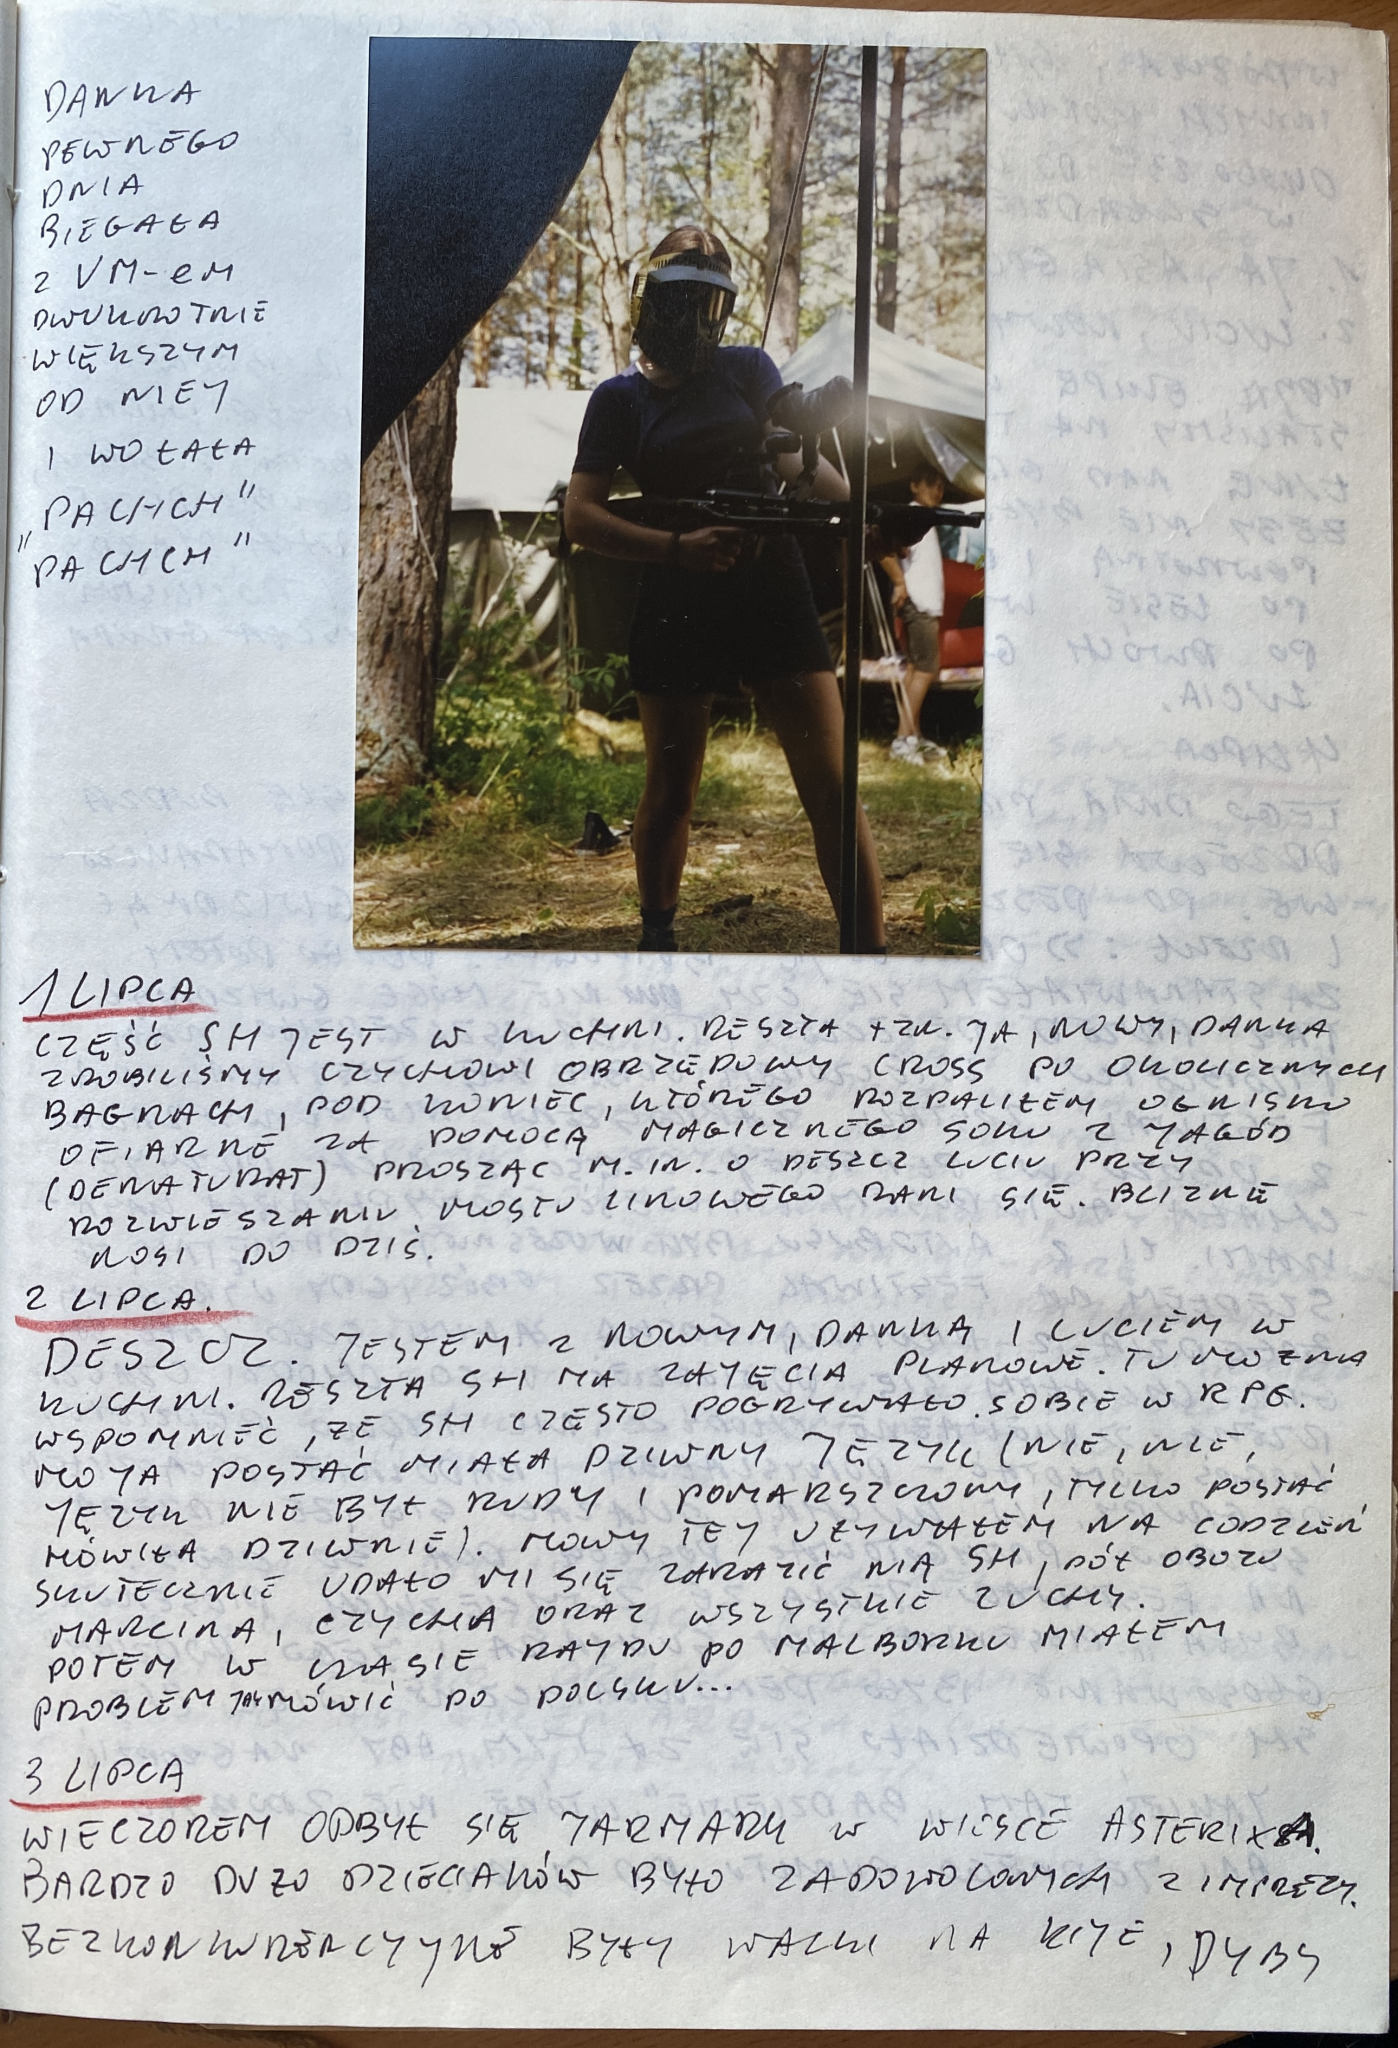 DANKA
PEWNEGO
DNIA
BIEGAŁA
Z VM-eM
DWUKROTNIE
WIĘKSZYM
OD NIEJ
I WOŁAŁA
"PACHCH"
"PACHCH"
1 LIPCA
CZĘŚĆ SH JEST W KUCHNI. RESZTA + ZK. JA, NOWY, DANKA
ZROBILIŚMY CZYCHOWI OBRZĘDOWY CROSS PO OKOLICZNYCH
BAGNACH, POD KONIEC, KTÓREGO ROZPALIŁEM OGNISKO
OFIARNE ZA POMOCĄ MAGICZNEGO SOKU Z JAGÓD
(DENATURAT) PROSZĄC M. IN. O DESZCZ LUCIU PRZY
ROZWIESZANIU MOSTU LINOWEGO RANI SIĘ. BLIZNĘ
NOSI DO DZIŚ.
2 LIPCA.
DESZCZ. JESTEM Z NOWYM, DANKĄ I LUCIEM W
KUCHNI. RESZTA SH MA ZAJĘCIA PLANOWE. TU MOŻNA
WSPOMNIEĆ, ŻE SH CZĘSTO POGRYWAŁO SOBIE W RPG.
MOJA POSTAĆ MIAŁA DZIWNY JĘZYK (NIE, NIE,
JĘZYK NIE BYŁ RUDY I POMARSZCZONY, TYLKO POSTAĆ
MÓWIŁA DZIWNIE). MOWY TEJ UŻYWAŁEM NA CODZIEŃ
SKUTECZNIE UDAŁO MI SIĘ ZARAZIĆ NIĄ SH, PÓŁ OBOZU
MARCINA, CZYCHA ORAZ WSZYSTKIE ZUCHY.
POTEM W CZASIE RAJDU PO MALBORKU MIAŁEM
PROBLEM MÓWIĆ PO POLSKU...
3 LIPCA
WIECZOREM ODBYŁ SIĘ JARMARK W WIOSCE ASTERIXA.
BARDZO DUŻO DZIECIAKÓW BYŁO ZADOWOLONYCH Z IMPREZY.
BEZKONKURENCYJNE BYŁY WALKI NA KIJE, DYBY